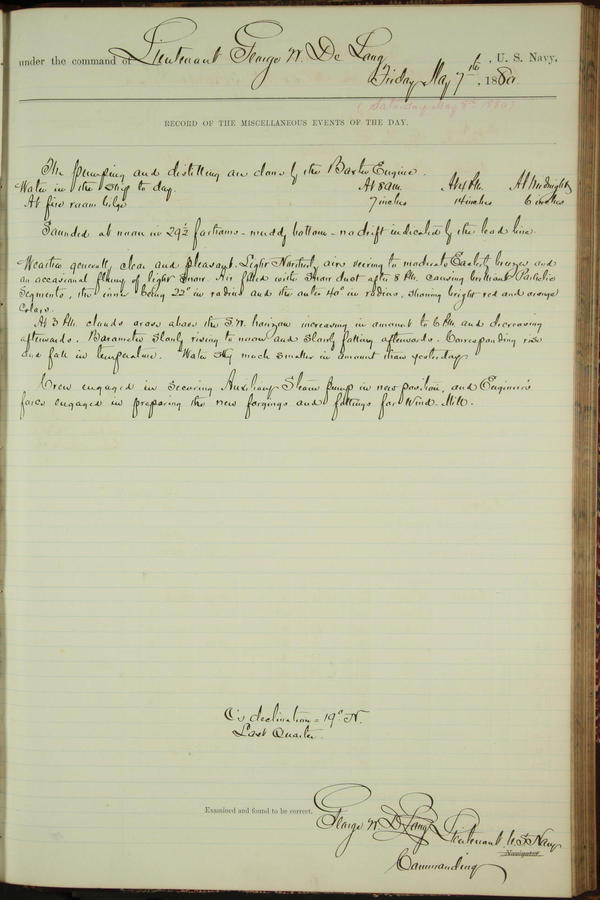 under the command of Lieutenant George W. De Long, U. S. Navy,
Friday May 7th, 1880
(Saturday May 8th 1880)
RECORD OF THE MISCELLANEOUS EVENTS OF THE DAY.
The pumping and distilling are done by the Baxter Engine.
Water in the ship to day. At 8 am. At 4 PM. At Midnight
At fire room bilge 7 inches 14 inches 6 inches
Sounded at noon in 29½ fathoms - muddy bottom - no drift indicated by the lead line.
Weather generally clear and pleasant. Light Northerly airs veering to moderate Easterly breezes and
an occasional flurry of light snow. Air filled with snow dust after 8 PM. causing brilliant Parhelic
Segments, the inner being 22° in radius and the outer 40° in radius, showing bright red and orange
Colors.
At 3 PM clouds arose above the S.W. horizon increasing in amount to 6 PM and decreasing
afterwards. Barometer slowly rising to noon and slowly falling afterwards. Corresponding rise
and fall in temperature. Water sky much smaller in amount than yesterday.
Crew engaged in securing Auxiliary Steam pump in new position, and Engineer's
force engaged in preparing the new forgings and fittings for Wind Mill.
☾'s declination = 19° N.
Last Quarter.
Examined and found to be correct.
George W. De Long Lieutenant U.S. Navy
Navigator.
Commanding